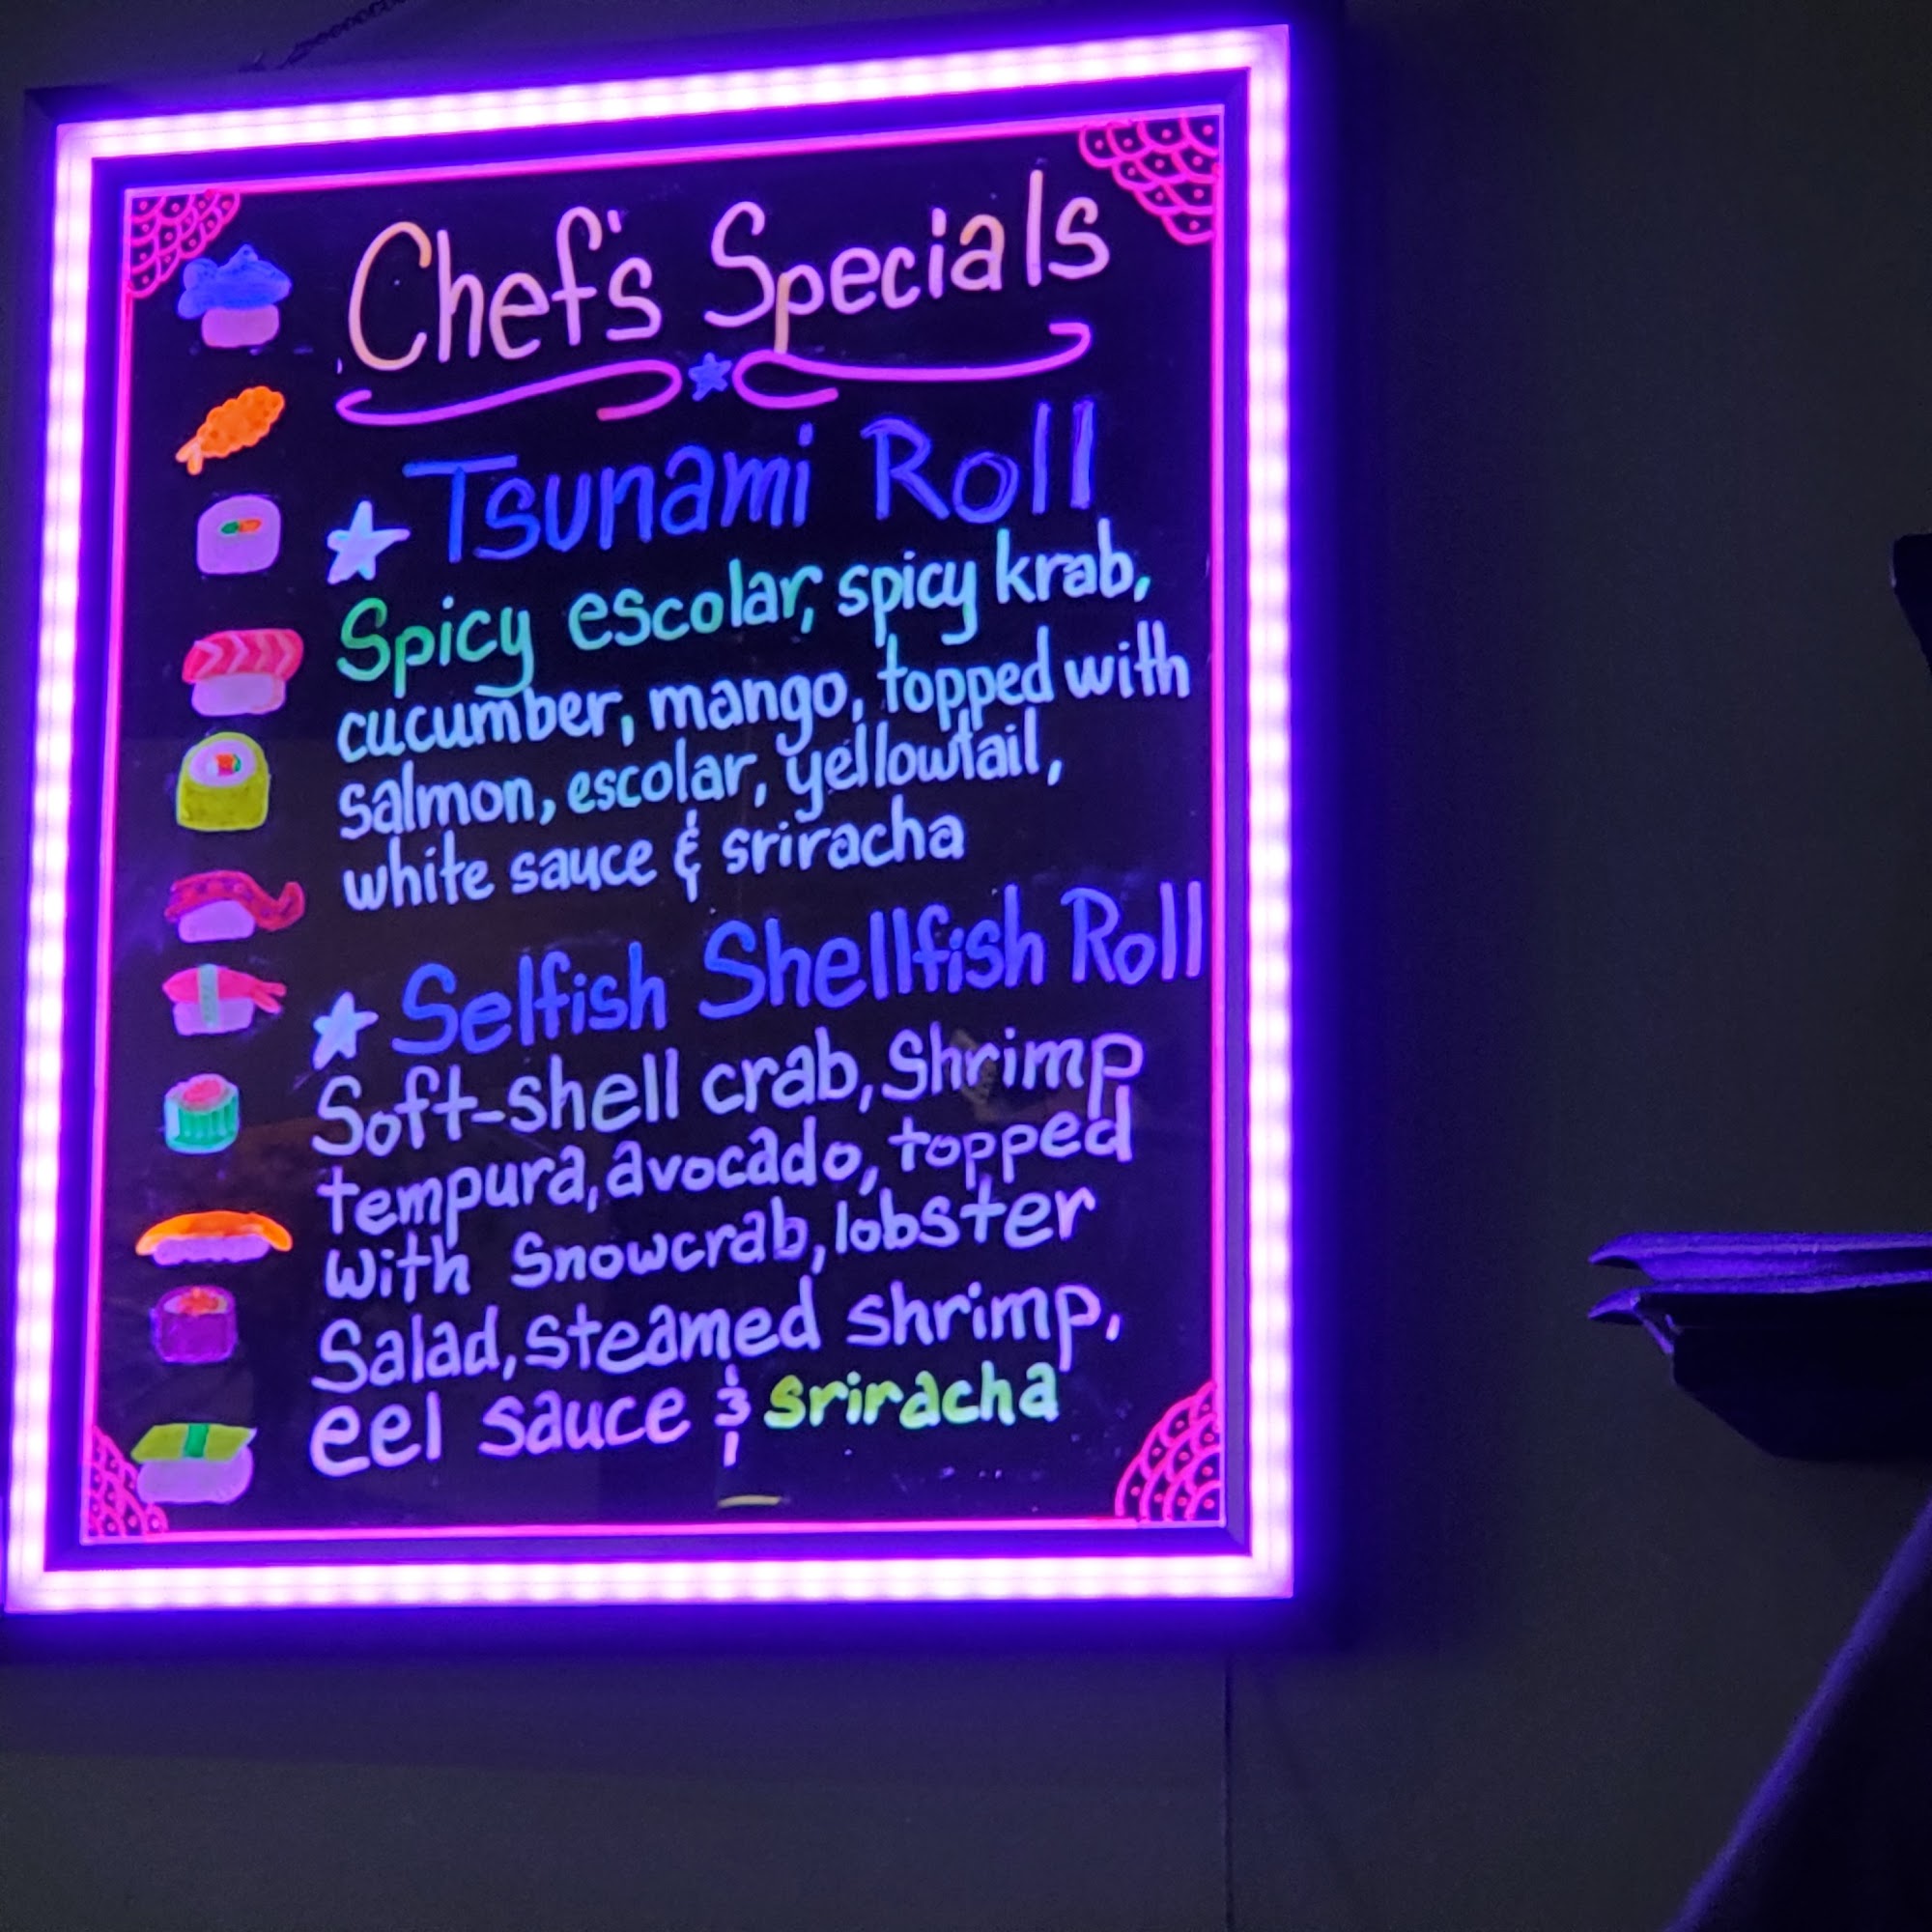 Chef's Specials
Tsunami Roll
Spicy escolar, spicy krab,
cucumber, mango, topped with
salmon, escolar, yellowtail,
white sauce & sriracha
Selfish Shellfish Roll
Soft-shell crab, Shrimp
tempura, avocado, topped
with Snowcrab, lobster
Salad, steamed shrimp,
eel sauce & sriracha